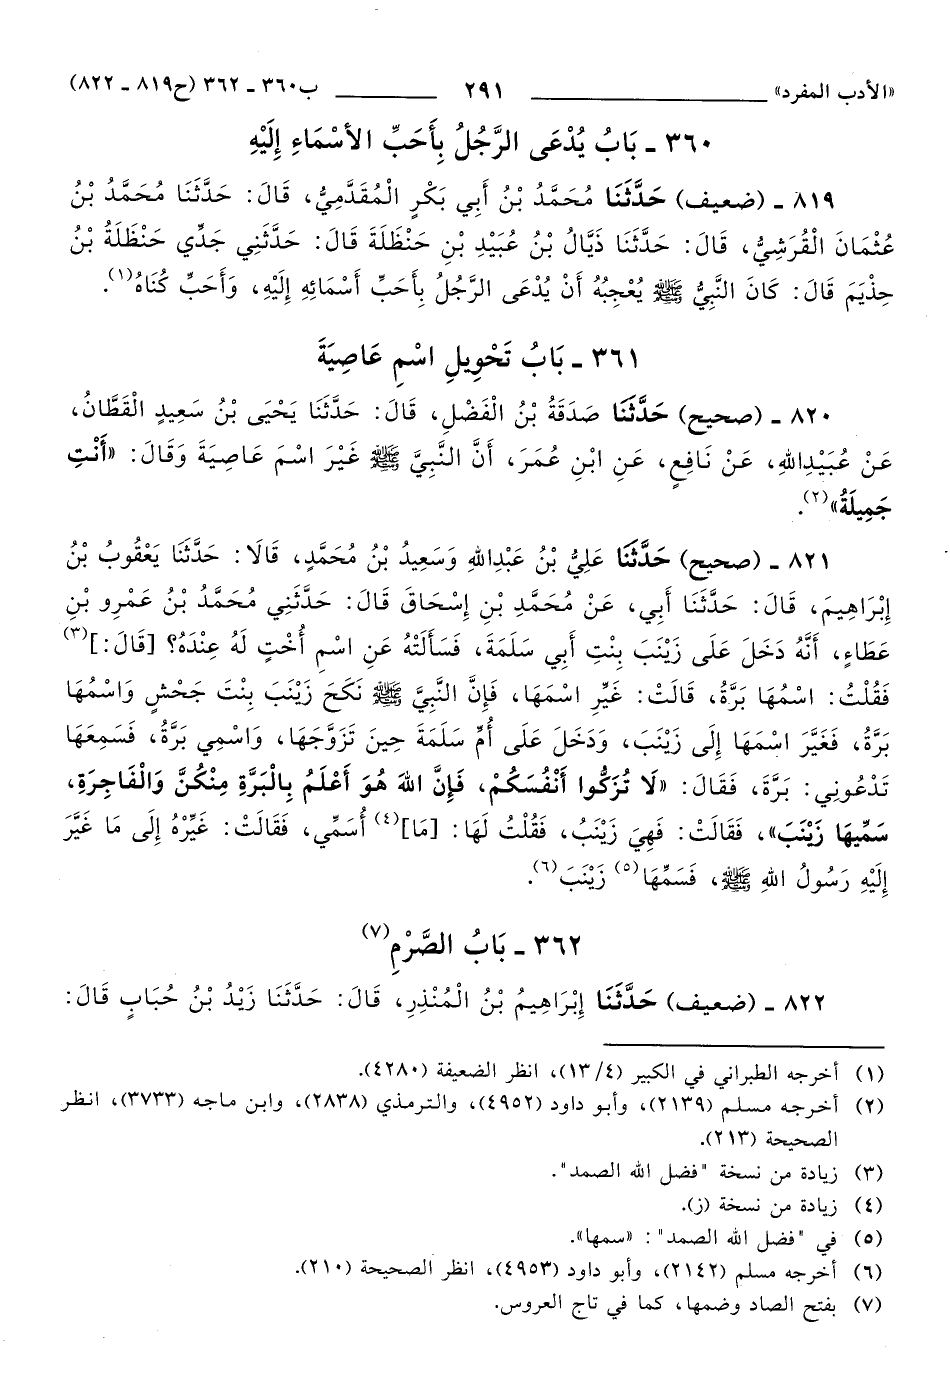 «الأدب المفرد» ٢٩١ ب٣٦٠ ـ ٣٦٢ (ح٨١٩ ـ ٨٢٢)
٣٦٠ ـ بَابُ يُدْعَى الرَّجُلُ بِأَحَبِّ الأَسْمَاءِ إِلَيْهِ
٨١٩ ـ (ضعيف) حَدَّثَنَا مُحَمَّدُ بْنُ أَبِي بَكْرٍ الْمُقَدَّمِيُّ، قَالَ: حَدَّثَنَا مُحَمَّدُ بْنُ
عُثْمَانَ الْقُرَشِيُّ، قَالَ: حَدَّثَنَا ذَيَّالُ بْنُ عُبَيْدِ بْنِ حَنْظَلَةَ قَالَ: حَدَّثَنِي جَدِّي حَنْظَلَةُ بْنُ
حِذْيَمَ قَالَ: كَانَ النَّبِيُّ ﷺ يُعْجِبُهُ أَنْ يُدْعَى الرَّجُلُ بِأَحَبِّ أَسْمَائِهِ إِلَيْهِ، وَأَحَبِّ كُنَاهُ(١).
٣٦١ ـ بَابُ تَحْوِيلِ اسْمِ عَاصِيَةَ
٨٢٠ ـ (صحيح) حَدَّثَنَا صَدَقَةُ بْنُ الْفَضْلِ، قَالَ: حَدَّثَنَا يَحْيَى بْنُ سَعِيدٍ الْقَطَّانُ،
عَنْ عُبَيْدِاللهِ، عَنْ نَافِعٍ، عَنِ ابْنِ عُمَرَ، أَنَّ النَّبِيَّ ﷺ غَيْرَ اسْمَ عَاصِيَةَ وَقَالَ: «أَنْتِ
جَمِيلَةُ»(٢).
٨٢١ ـ (صحيح) حَدَّثَنَا عَلِيُّ بْنُ عَبْدِاللهِ وَسَعِيدُ بْنُ مُحَمَّدٍ، قَالَا: حَدَّثَنَا يَعْقُوبُ بْنُ
إِبْرَاهِيمَ، قَالَ: حَدَّثَنَا أَبِي، عَنْ مُحَمَّدِ بْنِ إِسْحَاقَ قَالَ: حَدَّثَنِي مُحَمَّدُ بْنُ عَمْرِو بْنِ
عَطَاءٍ، أَنَّهُ دَخَلَ عَلَى زَيْنَبَ بِنْتِ أَبِي سَلَمَةَ، فَسَأَلَتْهُ عَنِ اسْمِ أُخْتٍ لَهُ عِنْدَهُ؟ [قَالَ:](٣)
فَقُلْتُ: اسْمُهَا بَرَّةُ، قَالَتْ: غَيِّرِ اسْمَهَا، فَإِنَّ النَّبِيَّ ﷺ نَكَحَ زَيْنَبَ بِنْتَ جَحْشٍ وَاسْمُهَا
بَرَّةُ، فَغَيَّرَ اسْمَهَا إِلَى زَيْنَبَ، وَدَخَلَ عَلَى أُمِّ سَلَمَةَ حِينَ تَزَوَّجَهَا، وَاسْمِي بَرَّةُ، فَسَمِعَهَا
تَدْعُونِي: بَرَّةَ، فَقَالَ: «لَا تُزَكُّوا أَنْفُسَكُمْ، فَإِنَّ اللهَ هُوَ أَعْلَمُ بِالْبَرَّةِ مِنْكُنَّ وَالْفَاجِرَةِ،
سَمِّيهَا زَيْنَبَ»، فَقَالَتْ: فَهِيَ زَيْنَبُ، فَقُلْتُ لَهَا: [مَا](٤) أُسَمِّي، فَقَالَتْ: غَيِّرْهُ إِلَى مَا غَيَّرَ
إِلَيْهِ رَسُولُ اللهِ ﷺ، فَسَمِّهَا(٥) زَيْنَبَ(٦).
٣٦٢ ـ بَابُ الصَّرْمِ(٧)
٨٢٢ ـ (ضعيف) حَدَّثَنَا إِبْرَاهِيمُ بْنُ الْمُنْذِرِ، قَالَ: حَدَّثَنَا زَيْدُ بْنُ حُبَابٍ قَالَ:
(١) أخرجه الطبراني في الكبير (١٣/٤)، انظر الضعيفة (٤٢٨٠).
(٢) أخرجه مسلم (٢١٣٩)، وأبو داود (٤٩٥٢)، والترمذي (٢٨٣٨)، وابن ماجه (٣٧٣٣)، انظر
الصحيحة (٢١٣).
(٣) زيادة من نسخة "فضل الله الصمد".
(٤) زيادة من نسخة (ز).
(٥) في "فضل الله الصمد": «سمها».
(٦) أخرجه مسلم (٢١٤٢)، وأبو داود (٤٩٥٣)، انظر الصحيحة (٢١٠).
(٧) بفتح الصاد وضمها، كما في تاج العروس.